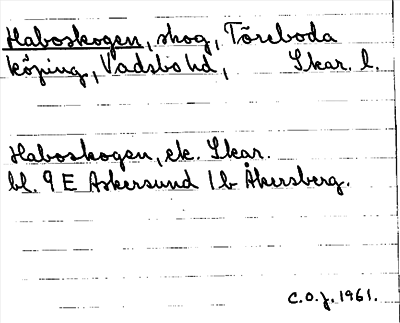 Haboskogen, skog, Töreboda
köping, Vadsbo hd, Skar. l.
Haboskogen, ek. Skar.
bl. 9 E Askersund 1 b Åkersberg.
C.O.J. 1961.